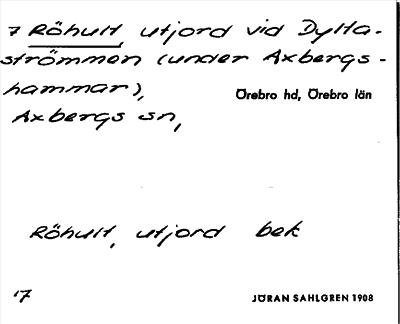 7 Röhult, utjord vid Dylta-
strömmen (under Axbergs-
hammar),
Örebro hd, Örebro län
Axbergs sn,
Röhult, utjord bek
17
JÖRAN SAHLGREN 1908